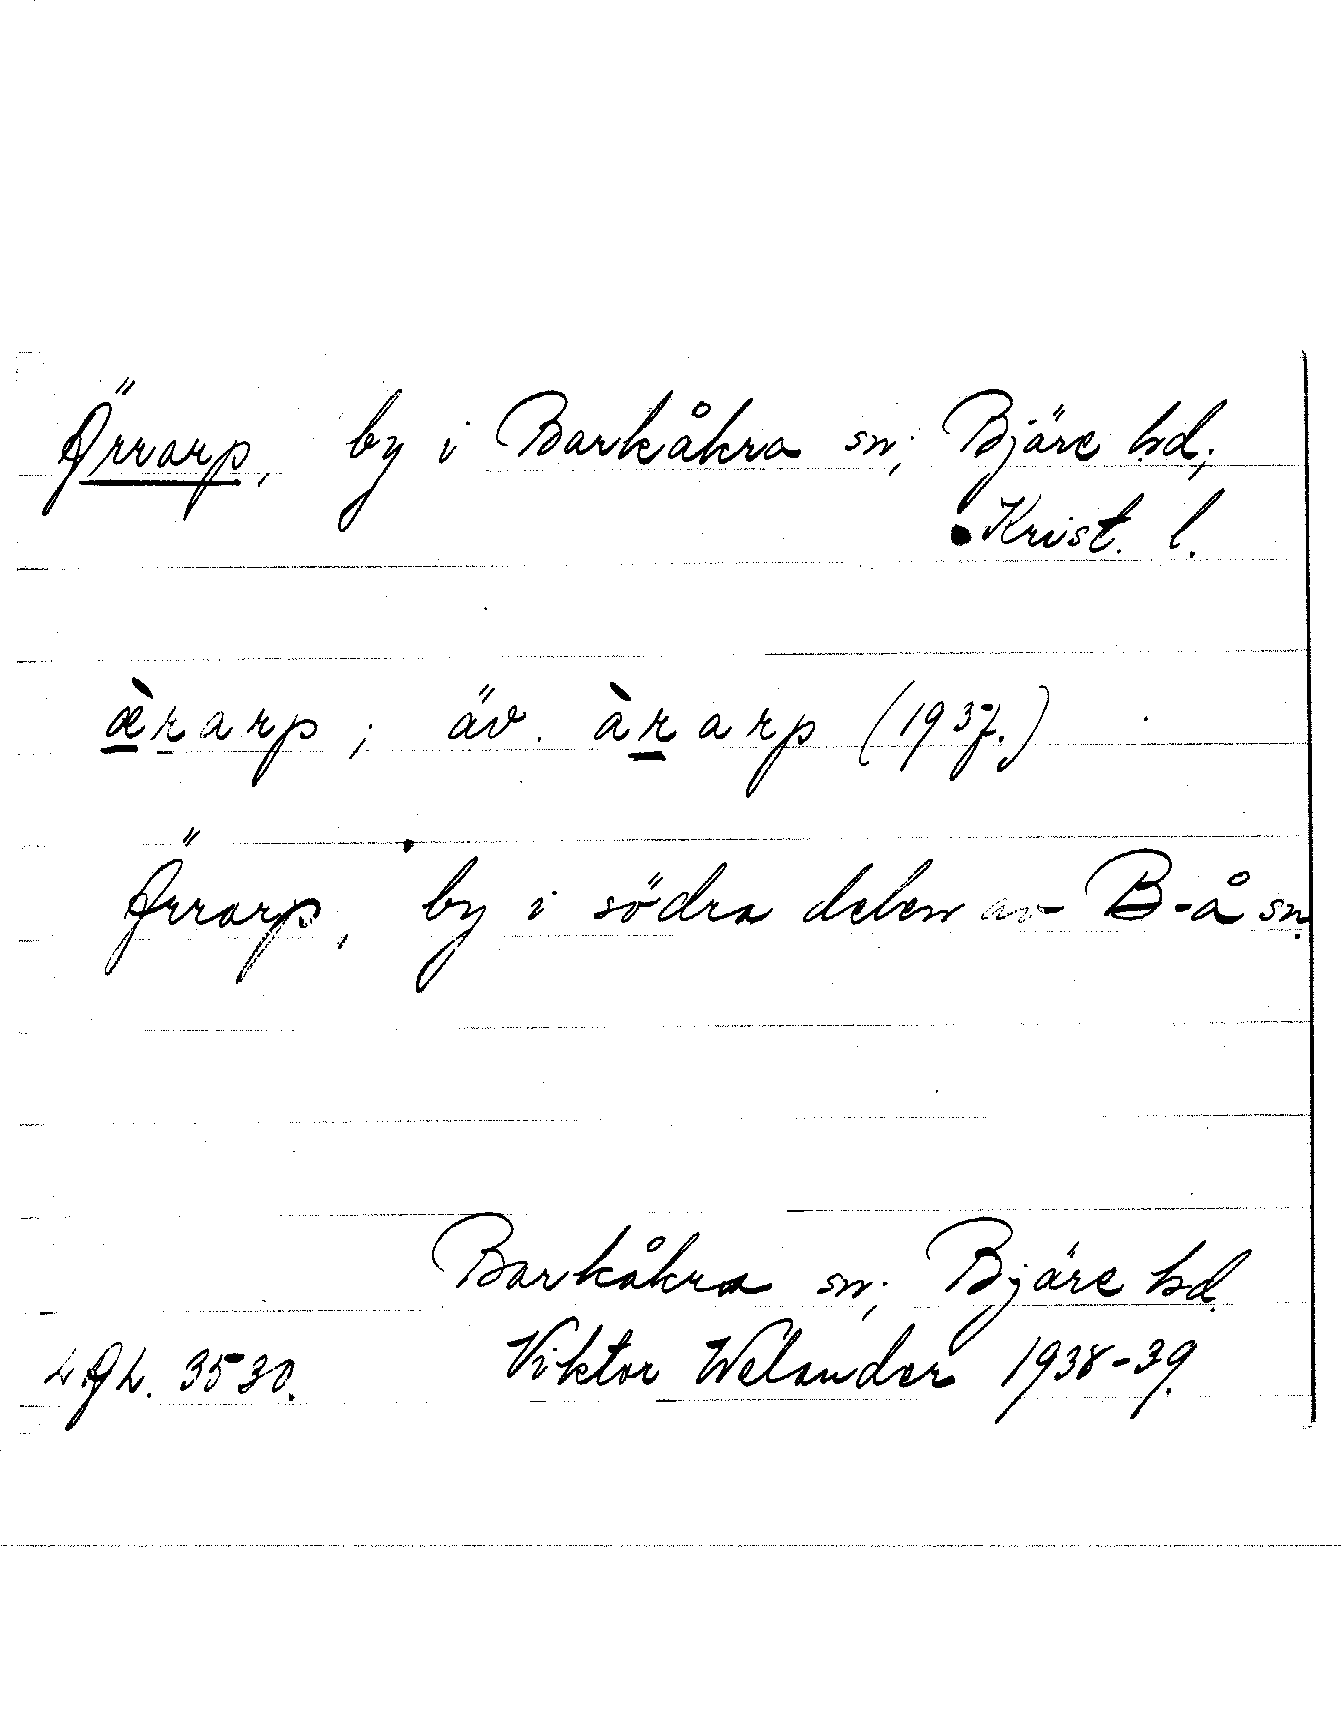 Ärrarp, by i Barkåkra sn; Bjäre hd;
Krist. l.
æ̀rarp; äv. àrarp (1937.)
Ärrarp, by i södra delen av B-å sn.
Barkåkra sn; Bjäre hd.
LAL. 3530. Viktor Welander 1938-39.